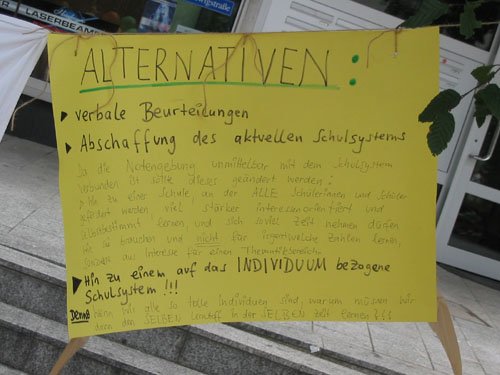 LASERBEAMER
ALTERNATIVEN:
▸ verbale Beurteilungen
▸ Abschaffung des aktuellen Schulsystems
Da die Notengebung unmittelbar mit dem Schulsystem
verbunden ist sollte dieser geändert werden:
Hin zu einer Schule an der ALLE Schülerinnen und Schüler
gefördert werden viel stärker interessenorientiert und
selbstbestimmt lernen, und sich soviel Zeit nehmen dürfen
wie sie brauchen und nicht für irgentwelche Zahlen lernen,
sondern aus Interesse für einen Themenbereich.
▸ Hin zu einem auf das INDIVIDUUM bezogene
Schulsystem !!!
Denn: Wenn wir alle so tolle Individuen sind, warum müssen wir
dann den SELBEN Lernstoff in der SELBEN Zeit lernen???